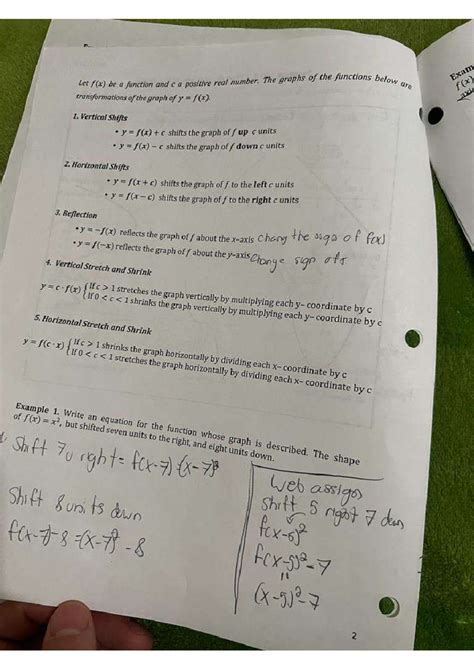 Let f(x) be a function and c a positive real number. The graphs of the functions below are
transformations of the graph of y = f(x).
1. Vertical Shifts
• y = f(x) + c shifts the graph of f up c units
• y = f(x) − c shifts the graph of f down c units
2. Horizontal Shifts
• y = f(x + c) shifts the graph of f to the left c units
• y = f(x − c) shifts the graph of f to the right c units
3. Reflection
• y = −f(x) reflects the graph of f about the x-axis Chang the sign of f(x)
• y = f(−x) reflects the graph of f about the y-axis Change sign of
4. Vertical Stretch and Shrink
y = c · f(x) { If c > 1 stretches the graph vertically by multiplying each y− coordinate by c
If 0 < c < 1 shrinks the graph vertically by multiplying each y− coordinate by c
5. Horizontal Stretch and Shrink
y = f(c · x) { If c > 1 shrinks the graph horizontally by dividing each x− coordinate by c
If 0 < c < 1 stretches the graph horizontally by dividing each x− coordinate by c
Example 1. Write an equation for the function whose graph is described. The shape
of f(x) = x², but shifted seven units to the right, and eight units down.
Shift 7u right = f(x-7) (x-7)²
Shift 8 units down
f(x-7)-8 = (x-7)² - 8
Web assign
shift 5 right 7 down
f(x-5)²
f(x-5)²-7
=
(x-5)²-7
2
Exam
f(x)